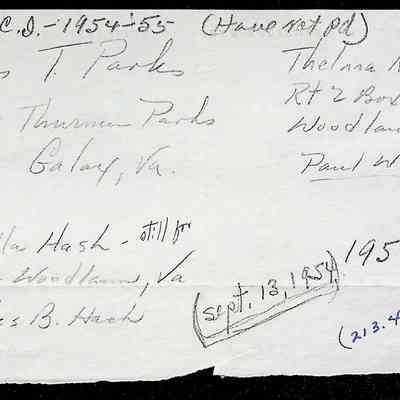 C.I. - 1954-55 (Have not pd)
s T. Parks
Thurman Parks
Galax, Va.
Thelma
Rt 2 Box
Woodlaw
Paul W
lla Hash - still for
Woodlawn, Va
es B. Hash
(Sept. 13, 1954)
195
(213.4